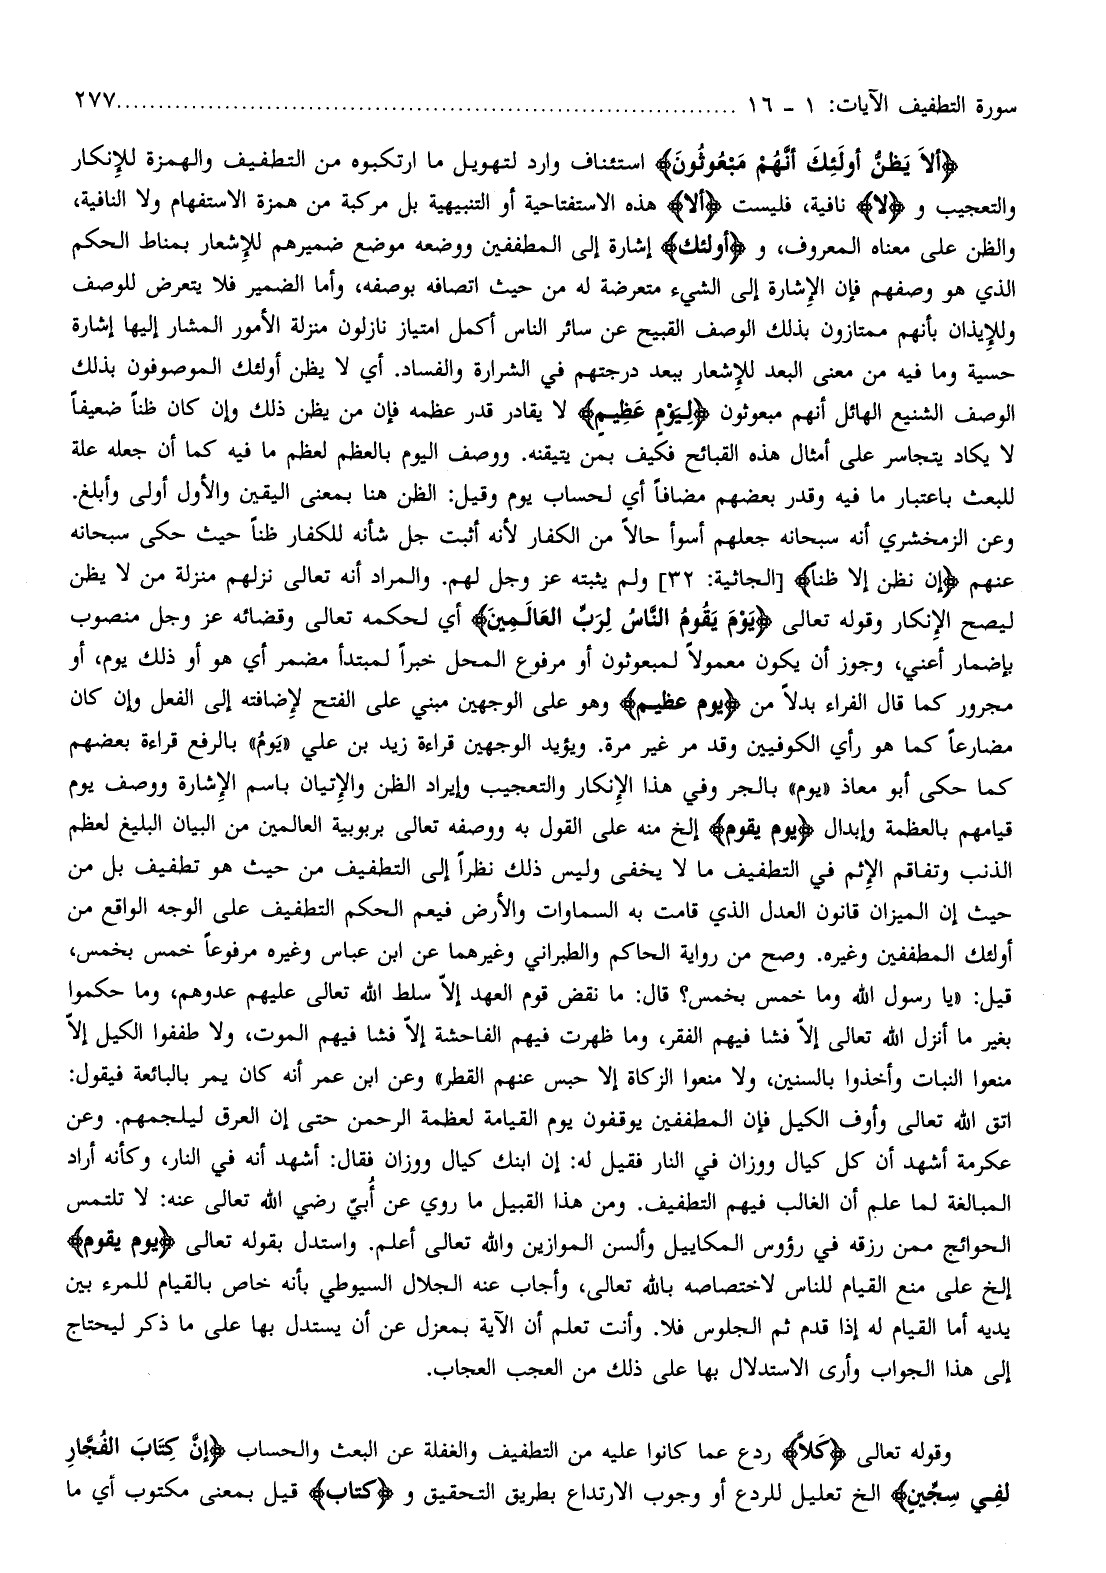 سورة التطفيف الآيات: ١ ـ ١٦ ........................................................................... ٢٧٧
﴿أَلاَ يَظَنُّ أولَئِكَ أَنَّهُمْ مَبْعُوثُونَ﴾ استئناف وارد لتهويل ما ارتكبوه من التطفيف والهمزة للإِنكار
والتعجيب و ﴿لا﴾ نافية، فليست ﴿ألا﴾ هذه الاستفتاحية أو التنبيهية بل مركبة من همزة الاستفهام ولا النافية،
والظن على معناه المعروف، و ﴿أولئك﴾ إشارة إلى المطففين ووضعه موضع ضميرهم للإِشعار بمناط الحكم
الذي هو وصفهم فإن الإِشارة إلى الشيء متعرضة له من حيث اتصافه بوصفه، وأما الضمير فلا يتعرض للوصف
وللإِيذان بأنهم ممتازون بذلك الوصف القبيح عن سائر الناس أكمل امتياز نازلون منزلة الأمور المشار إليها إشارة
حسية وما فيه من معنى البعد للإِشعار ببعد درجتهم في الشرارة والفساد. أي لا يظن أولئك الموصوفون بذلك
الوصف الشنيع الهائل أنهم مبعوثون ﴿لِيَوْمٍ عَظِيمٍ﴾ لا يقادر قدر عظمه فإن من يظن ذلك وإن كان ظناً ضعيفاً
لا يكاد يتجاسر على أمثال هذه القبائح فكيف بمن يتيقنه. ووصف اليوم بالعظم لعظم ما فيه كما أن جعله علة
للبعث باعتبار ما فيه وقدر بعضهم مضافاً أي لحساب يوم وقيل: الظن هنا بمعنى اليقين والأول أولى وأبلغ.
وعن الزمخشري أنه سبحانه جعلهم أسوأ حالاً من الكفار لأنه أثبت جل شأنه للكفار ظناً حيث حكى سبحانه
عنهم ﴿إن نظن إلا ظناً﴾ [الجاثية: ٣٢] ولم يثبته عز وجل لهم. والمراد أنه تعالى نزلهم منزلة من لا يظن
ليصح الإِنكار وقوله تعالى ﴿يَوْمَ يَقُومُ النَّاسُ لِرَبِّ العَالَمِينَ﴾ أي لحكمه تعالى وقضائه عز وجل منصوب
بإضمار أعني، وجوز أن يكون معمولاً لمبعوثون أو مرفوع المحل خبراً لمبتدأ مضمر أي هو أو ذلك يوم، أو
مجرور كما قال الفراء بدلاً من ﴿يوم عظيم﴾ وهو على الوجهين مبني على الفتح لإِضافته إلى الفعل وإن كان
مضارعاً كما هو رأي الكوفيين وقد مر غير مرة. ويؤيد الوجهين قراءة زيد بن علي «يَومُ» بالرفع قراءة بعضهم
كما حكى أبو معاذ «يوم» بالجر وفي هذا الإِنكار والتعجيب وإيراد الظن والإِتيان باسم الإِشارة ووصف يوم
قيامهم بالعظمة وإبدال ﴿يوم يقوم﴾ إلخ منه على القول به ووصفه تعالى بربوبية العالمين من البيان البليغ لعظم
الذنب وتفاقم الإِثم في التطفيف ما لا يخفى وليس ذلك نظراً إلى التطفيف من حيث هو تطفيف بل من
حيث إن الميزان قانون العدل الذي قامت به السماوات والأرض فيعم الحكم التطفيف على الوجه الواقع من
أولئك المطففين وغيره. وصح من رواية الحاكم والطبراني وغيرهما عن ابن عباس وغيره مرفوعاً خمس بخمس،
قيل: «يا رسول الله وما خمس بخمس؟ قال: ما نقض قوم العهد إلاّ سلط الله تعالى عليهم عدوهم، وما حكموا
بغير ما أنزل الله تعالى إلاّ فشا فيهم الفقر، وما ظهرت فيهم الفاحشة إلاّ فشا فيهم الموت، ولا طففوا الكيل إلاّ
منعوا النبات وأخذوا بالسنين، ولا منعوا الزكاة إلا حبس عنهم القطر» وعن ابن عمر أنه كان يمر بالبائعة فيقول:
اتق الله تعالى وأوف الكيل فإن المطففين يوقفون يوم القيامة لعظمة الرحمن حتى إن العرق ليلجمهم. وعن
عكرمة أشهد أن كل كيال ووزان في النار فقيل له: إن ابنك كيال ووزان فقال: أشهد أنه في النار، وكأنه أراد
المبالغة لما علم أن الغالب فيهم التطفيف. ومن هذا القبيل ما روي عن أُبيّ رضي الله تعالى عنه: لا تلتمس
الحوائج ممن رزقه في رؤوس المكاييل وألسن الموازين والله تعالى أعلم. واستدل بقوله تعالى ﴿يوم يقوم﴾
إلخ على منع القيام للناس لاختصاصه بالله تعالى، وأجاب عنه الجلال السيوطي بأنه خاص بالقيام للمرء بين
يديه أما القيام له إذا قدم ثم الجلوس فلا. وأنت تعلم أن الآية بمعزل عن أن يستدل بها على ما ذكر ليحتاج
إلى هذا الجواب وأرى الاستدلال بها على ذلك من العجب العجاب.
وقوله تعالى ﴿كَلاَّ﴾ ردع عما كانوا عليه من التطفيف والغفلة عن البعث والحساب ﴿إنَّ كِتَابَ الفُجَّارِ
لفِي سِجِّينٍ﴾ الخ تعليل للردع أو وجوب الارتداع بطريق التحقيق و ﴿كتاب﴾ قيل بمعنى مكتوب أي ما